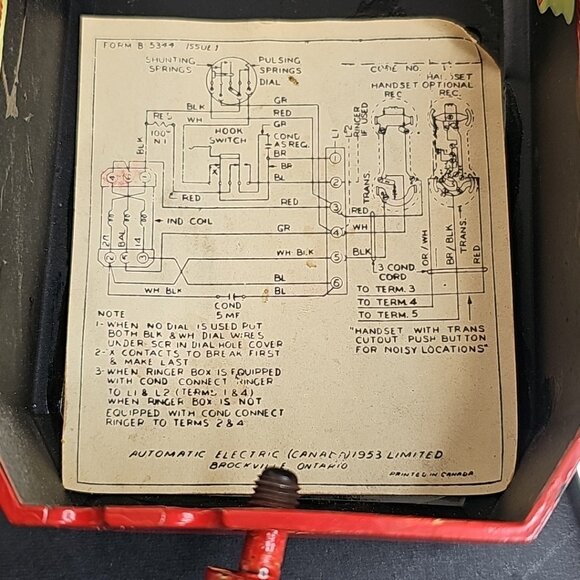 FORM B 5344 ISSUE 1
SHUNTING SPRINGS
PULSING SPRINGS
DIAL
RES
100
N.I.
BLK
WH
BLK
HOOK SWITCH
X
GR
RED
GR
COND AS REQ.
BR
BR
BL
RED
RED
GR
L1
L2
RINGER IF USED
1
2
3
4
5
6
CODE NO.
HANDSET
HANDSET OPTIONAL
REC.
REC.
TRANS.
RED
WH
BLK
3 COND CORD
OR/WH
BR/BLK
TRANS.
RED
IND COIL
BAL
14
2
3
WH BLK
BL
WH BLK
BL
COND
5 MF
TO TERM. 3
TO TERM. 4
TO TERM. 5
"HANDSET WITH TRANS
CUTOUT PUSH BUTTON
FOR NOISY LOCATIONS"
NOTE
1-WHEN NO DIAL IS USED PUT
BOTH BLK & WH DIAL WIRES
UNDER SCR IN DIAL HOLE COVER
2-X CONTACTS TO BREAK FIRST
& MAKE LAST
3-WHEN RINGER BOX IS EQUIPPED
WITH COND CONNECT RINGER
TO L1 & L2 (TERMS 1 & 4)
WHEN RINGER BOX IS NOT
EQUIPPED WITH COND CONNECT
RINGER TO TERMS 2 & 4
AUTOMATIC ELECTRIC (CANADA) 1953 LIMITED
BROCKVILLE ONTARIO
PRINTED IN CANADA